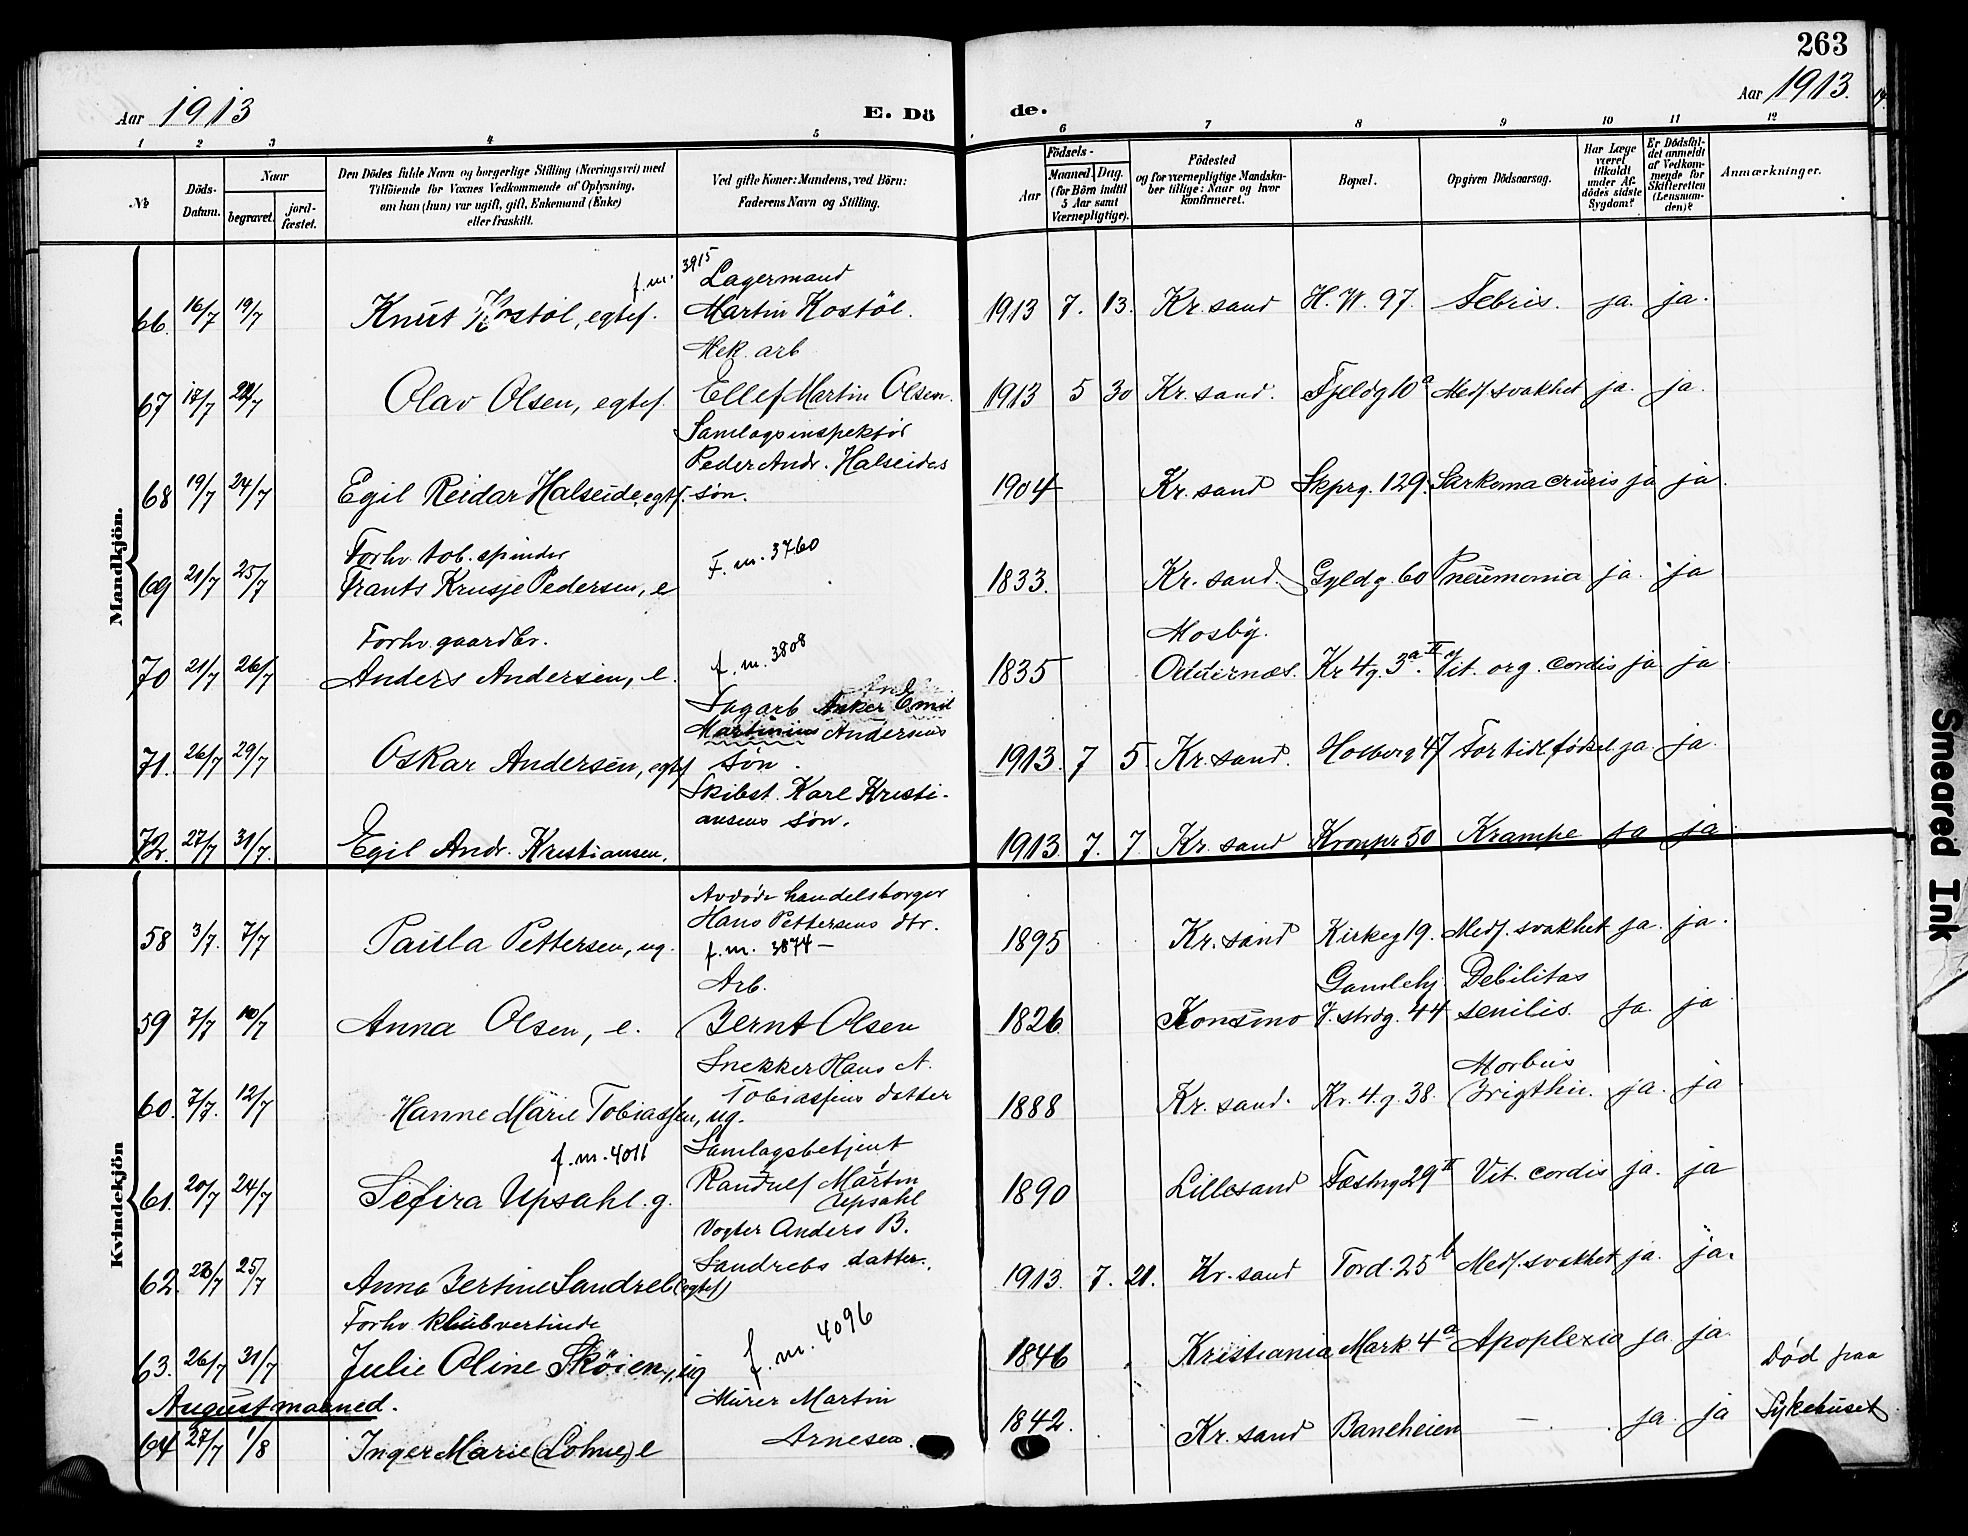 263
Aar 1913
E. Dö
de.
Aar 1913.
1 2 3 4 5 6 7 8 9 10 11 12
№
Döds-
Datum.
Naar
begravet.
jord-
fæstet.
Den Dödes fulde Navn og borgerlige Stilling (Næringsvei) med
Tilföiende for Voxnes Vedkommende af Oplysning,
om han (hun) var ugift, gift, Enkemand (Enke)
eller fraskilt.
Ved gifte Koner: Mandens, ved Börn:
Faderens Navn og Stilling.
Födsels-
Aar
Maaned
Dag.
(for Börn indtil
5 Aar samt
Værnepligtige).
Födested
og for værnepligtige Mandska-
ber tillige: Naar og hvor
konfirmeret.
Bopæl.
Opgiven Dödsaarsag.
Har Læge
været
tilkaldt
under Af-
dødes sidste
Sygdom?
Er Dödsfal-
det anmeldt
af Vedkom-
mende for
Skifteretten
(Lensman-
den)?
Anmærkninger.
Mandkjön.
f. m. 3915 Lagermand
66. 16/7 19/7 Knut Kostöl, egtef. Martin Kostöl. 1913 7. 13. Kr. sand H. W. 97. Febris. ja. ja.
Mek. arb
67 17/7 /7 Olav Olsen, egtef. Ellef Martin Olsen. 1913 5 30 Kr. sand. Fjeldg 10a Medf. svakhet ja. ja.
Samlagsinspektör
Peder Andr. Halseides
68 19/7 24/7 Egil Reidar Halseide, egtf. søn. 1904 Kr. sand Skprg. 129. Sarkoma cruris ja ja.
Forhv. tob. spinder F. m. 3760
69 21/7 25/7 Frants Krusje Pedersen, e 1833. Kr. sand. Gyldg. 60 Pneumonia ja. ja
Forhv. gaardbr. f. m. 3808 Mosby.
70 21/7 26/7 Anders Andersen, e. 1835 Oddernæs. Kr 4 g. 3a. II Vit. org. cordis ja ja
Sagarb Anker Emil
Martinius Andersens
71. 26/7 29/7 Oskar Andersen, egtef søn. 1913. 7 5. Kr. sand. Holberg 47 For tidl. fødsel. ja. ja.
Skibst. Karl Kristi-
ansens søn.
72. 27/7 31/7. Egil Andr. Kristiansen. 1913. 7. 7. Kr. sand Kronpr 50 Krampe ja ja.
Kvindekjön
Avdöde handelsborger
Hans Pettersens dtr.
58 3/7. 7/7 Paula Pettersen, ug. f. m. 3874 — 1895 Kr. sand Kirkeg 19. Medf. svakhet ja. ja.
Arb. Gamlehj. Debilitas
59 7/7 10/7 Anna Olsen, e. Bernt Olsen 1826 Konsmo V. strdg. 44 senilis. ja. ja
Snekker Hans A. Morbus
60. 7/7. 12/7 Hanne Marie Tobiassen, ug. Tobiassens datter 1888 Kr. sand. Kr. 4. g. 38. Brigthii. ja. ja.
f. m. 4011 Samlagsbetjent
61. 20/7 24/7 Sefira Upsahl. g. Randulf Martin 1890 Lillesand Fæstng 29 II Vit. cordis ja. ja
Upsahl
Vogter Anders B.
62. /7 25/7 Anna Bertine Sandreb (egtef) Sandrebs datter. 1913. 7. 21. Kr. sand Tord. 25 b Medf. svakhet ja. ja.
Forhv. klubvertinde
63. 26/7 31/7 Julie Oline Skøien, ug f. m. 4096 1846 Kristiania Mark 4a Apoplexia ja ja.
August maaned. Murer Martin Død paa
64 27/7 1/8 Inger Marie (Lohne) e Arnesen. 1842. Kr. sand Baneheien — ja ja Sykehuset
Smeared Ink